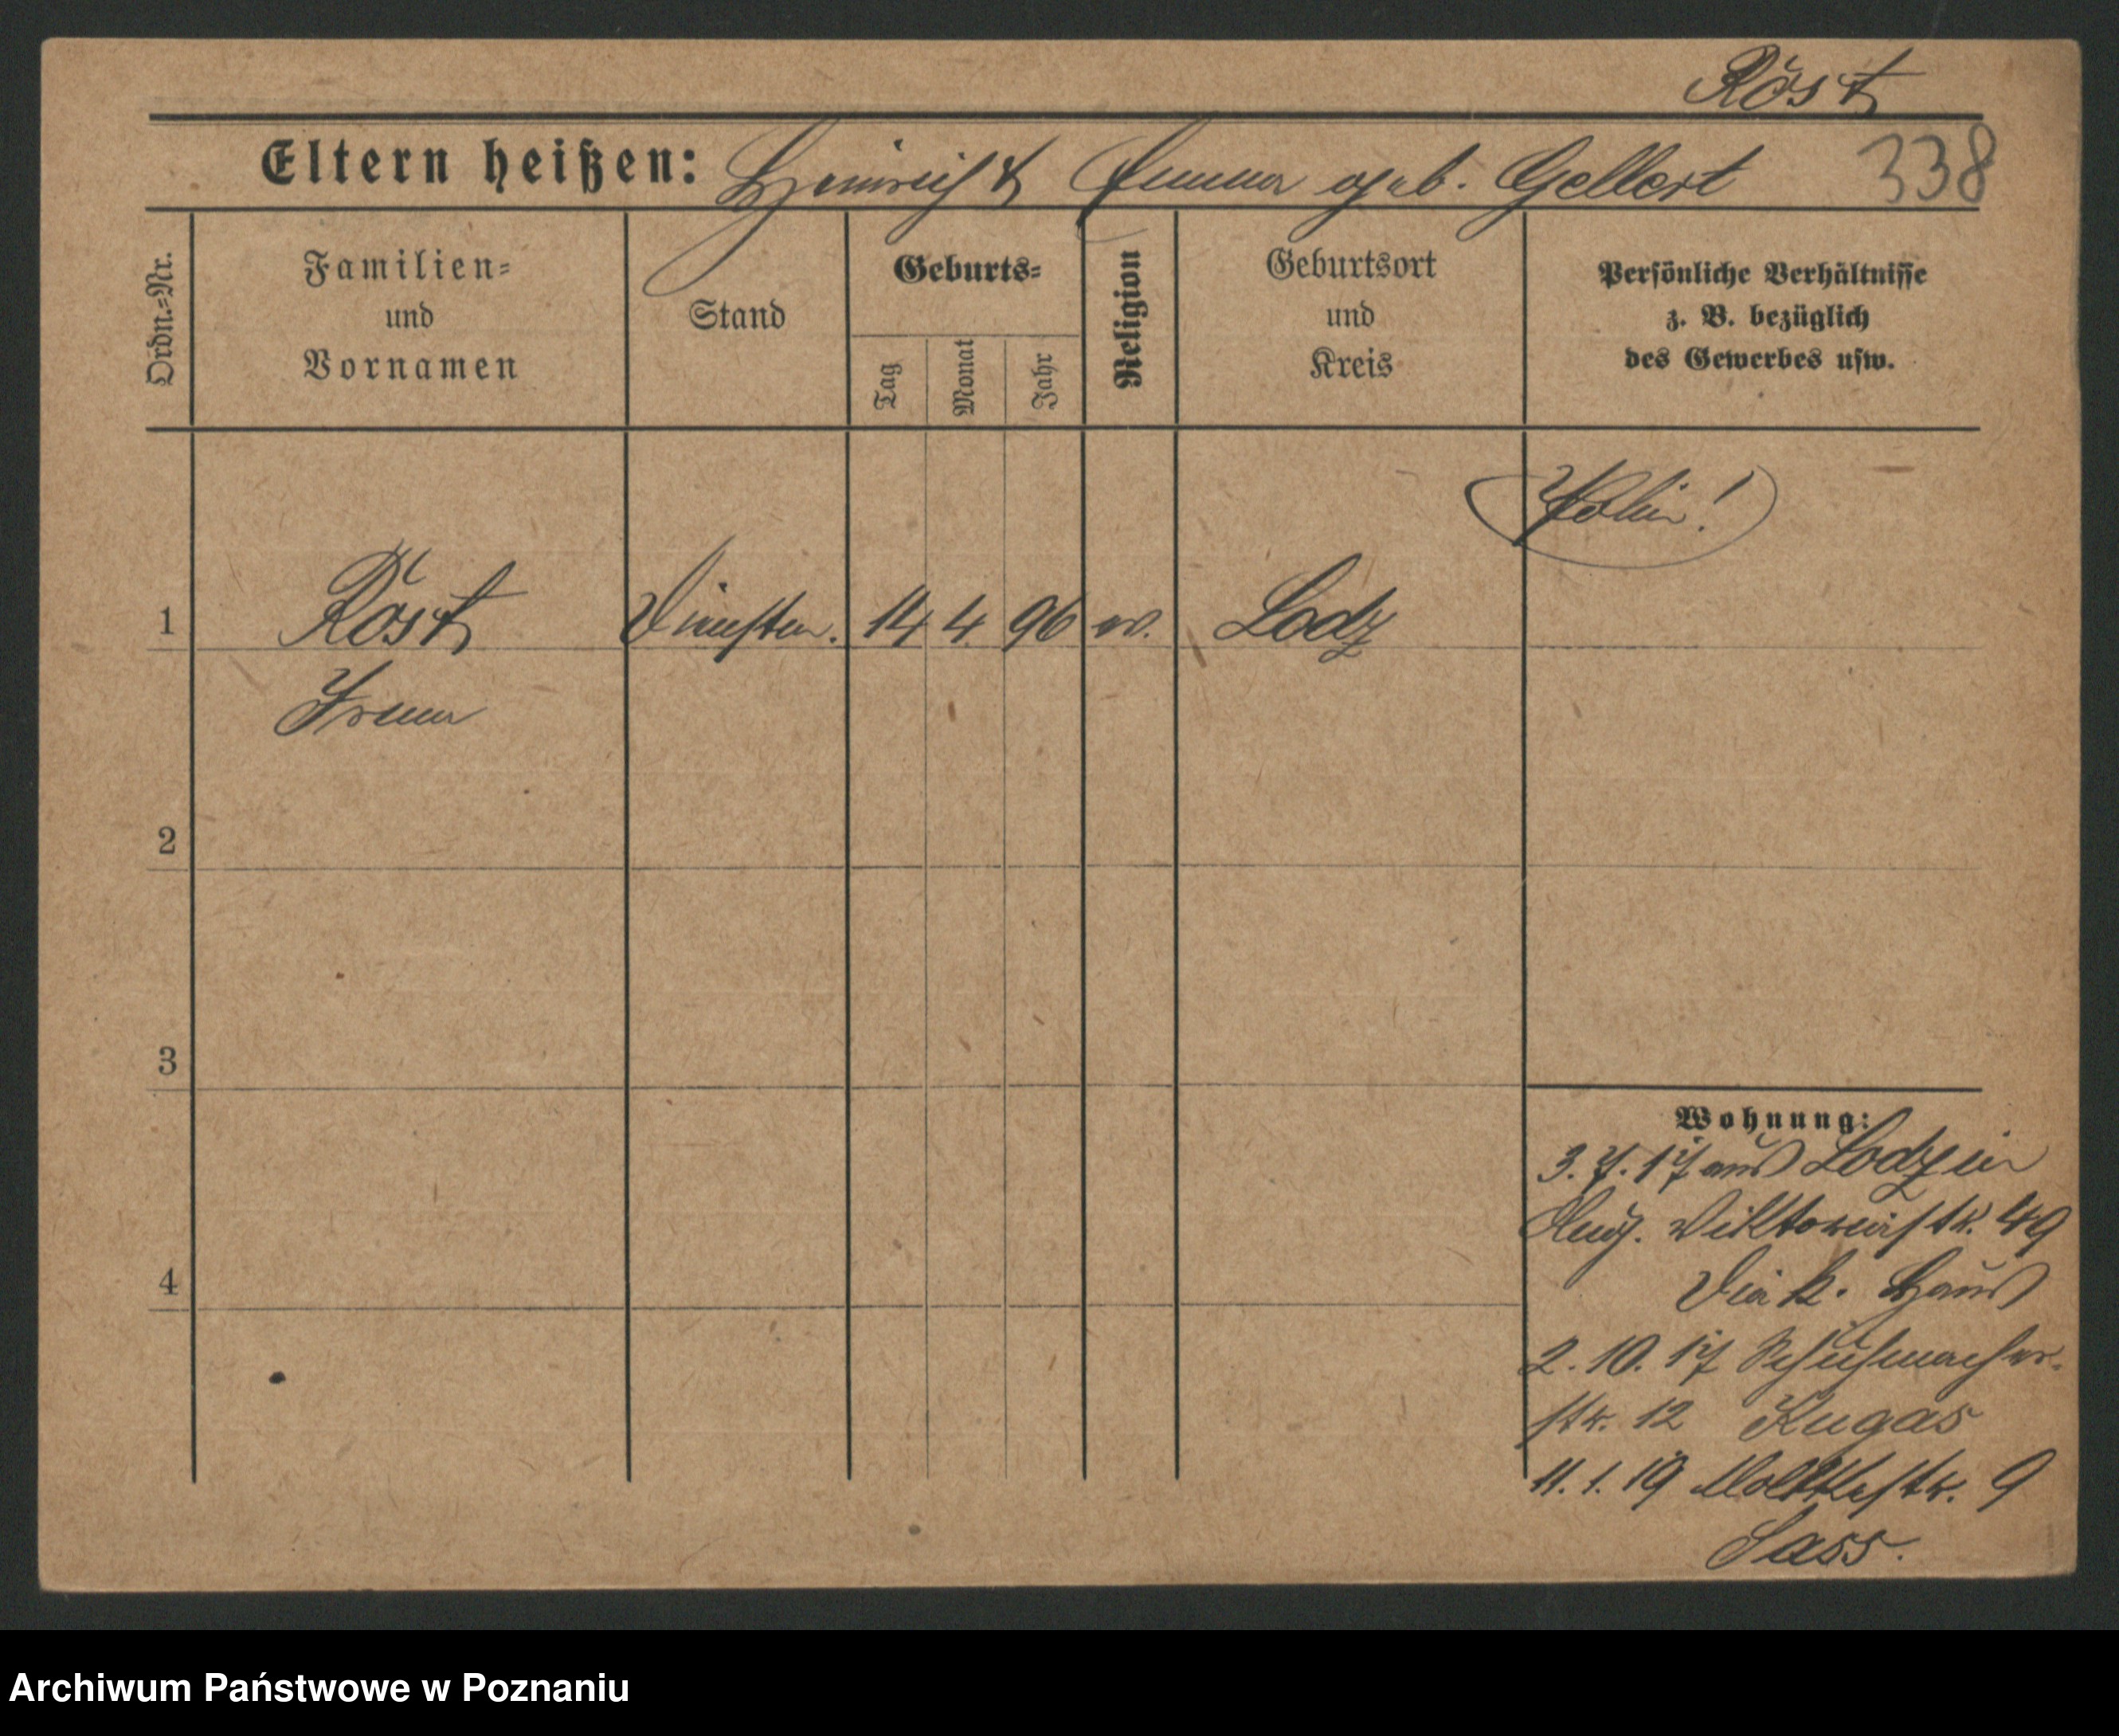 Röst
Eltern heißen: Heinrich & Emma geb. Gellert 338
Ordn.=Nr.
Familien=
und
Vornamen
Stand
Geburts=
Tag
Monat
Jahr
Religion
Geburtsort
und
Kreis
Persönliche Verhältnisse
z. B. bezüglich
des Gewerbes usw.
Polin!
1 Röst Dienstm. 14 4. 96 ev. Lodz
Irma
2
3
4
Wohnung:
3. 7. 17 aus Lodz in
Aug. Viktoriastr. 49
Diak. Haus
2. 10. 17 Schuhmacher-
str. 12 Kugas
11. 1. 19 Moltkestr. 9
Sass.
Archiwum Państwowe w Poznaniu